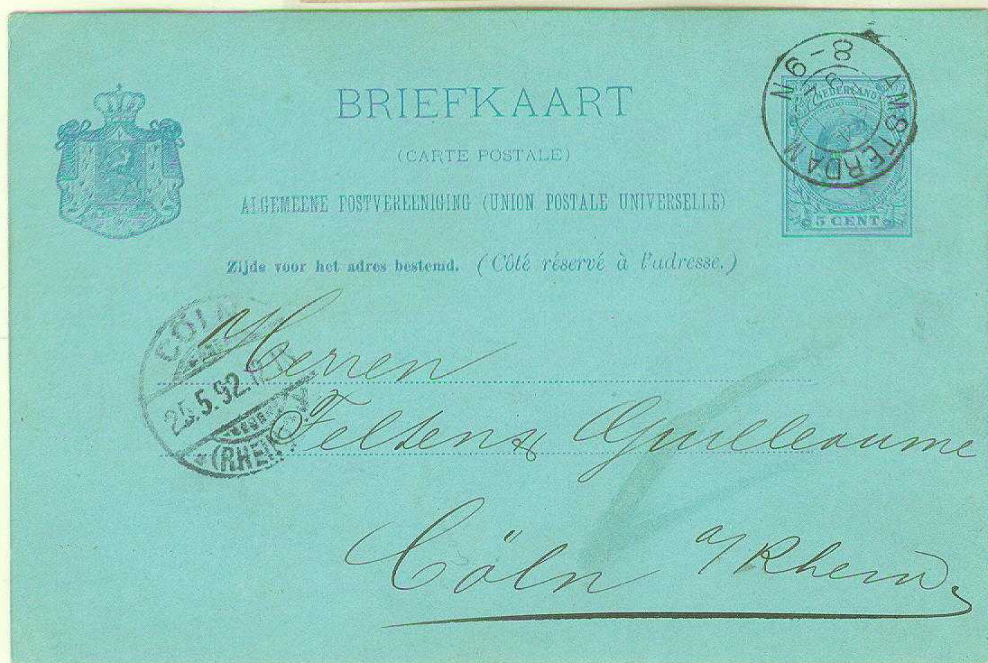 BRIEFKAART
(CARTE POSTALE)
ALGEMEENE POSTVEREENIGING (UNION POSTALE UNIVERSELLE)
Zijde voor het adres bestemd. (Côté réservé à l'adresse.)
NEDERLAND
5 CENT
AMSTERDAM
N 6-8
CÖLN
25.5.92.
(RHEIN)
Herren
Felten & Guilleaume
Cöln a/Rhein